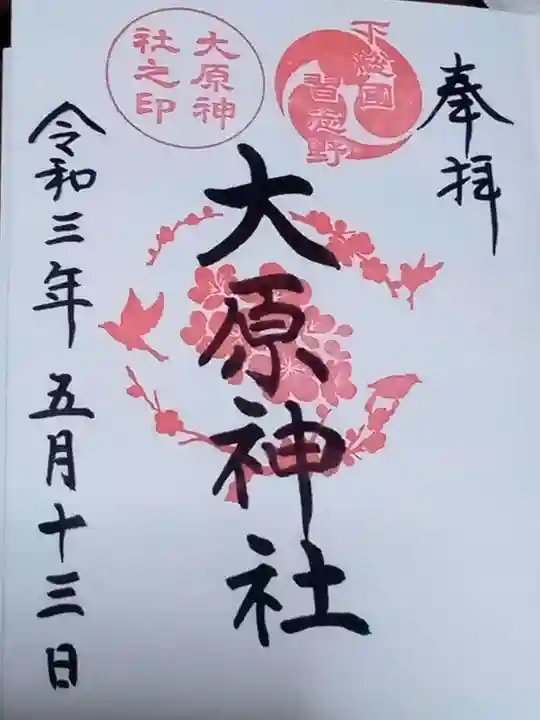 奉拝
下総国
習志野
大原神社
大原神
社之印
令和三年五月十三日